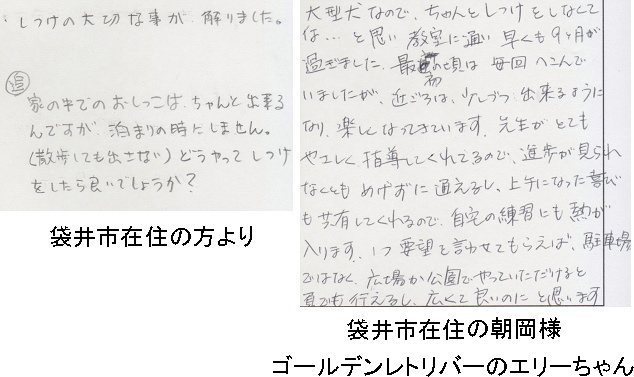 ・しつけの大切な事が、解りました。
追
家の中でのおしっこは、ちゃんと出来る
んですが、泊まりの時にしません。
(散歩しても出さない)どうやってしつけ
をしたら良いでしょうか?
袋井市在住の方より
大型犬なので、ちゃんとしつけをしなくて
は…と思い 教室に通い 早くも9ヶ月が
過ぎました。最初の頃は 毎回 へこんで
いましたが、近ごろは、少しづつ 出来るように
なり、楽しくなってきています。先生がとても
やさしく指導してくれてるので、進歩が見られ
なくとも めげずに通えるし、上手になった喜び
も共有してくれるので、自宅の練習にも熱が
入ります。1つ要望を言わせてもらえば、駐車場
ではなく、広場か公園でやっていただけると
夏でも行えるし、広くて良いのにと思います
袋井市在住の朝岡様
ゴールデンレトリバーのエリーちゃん